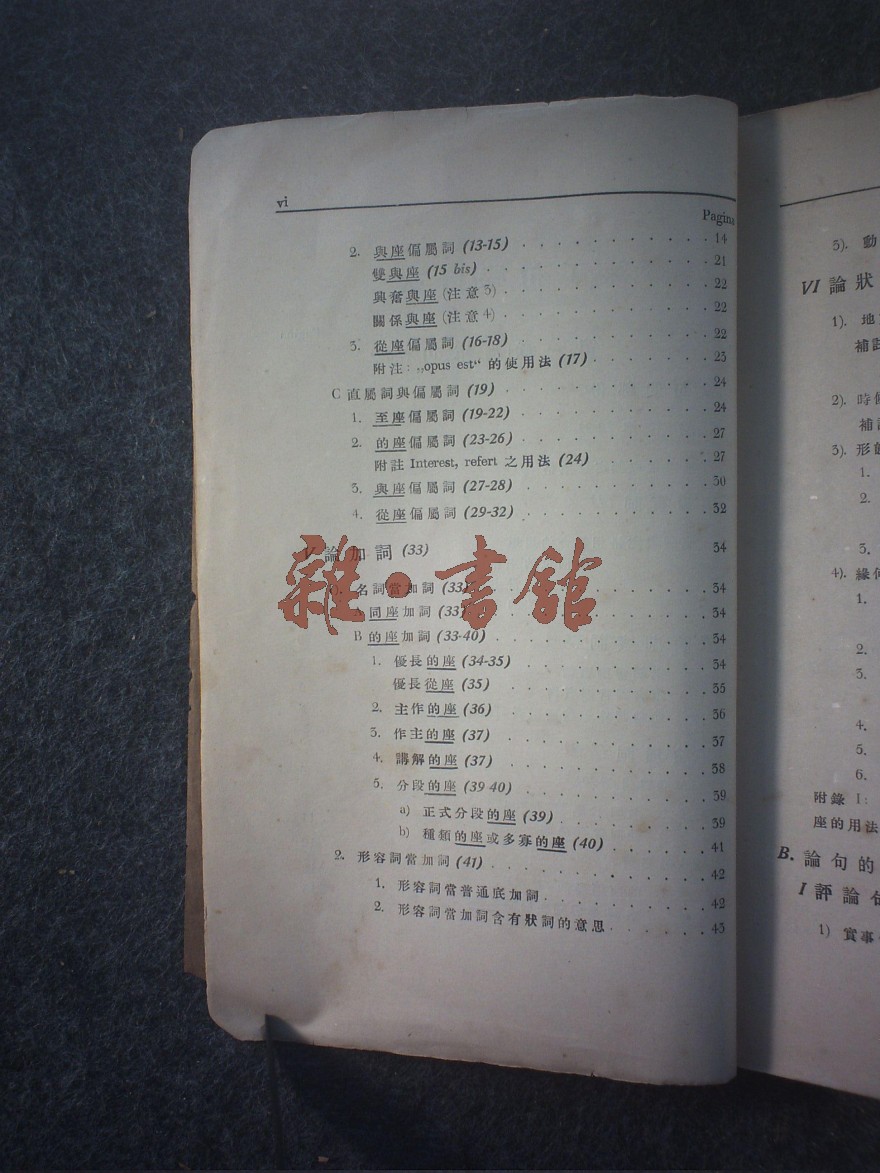 vi
Pagina
2. 與座偏屬詞 (13-15) 14
雙與座 (15 bis) 21
興奮與座 (注意3) 22
關係與座 (注意4) 22
3. 從座偏屬詞 (16-18) 22
附注: „opus est“ 的使用法 (17) 23
C 直屬詞與偏屬詞 (19) 24
1. 至座偏屬詞 (19-22) 24
2. 的座偏屬詞 (23-26) 27
附註 Interest, refert 之用法 (24) 27
3. 與座偏屬詞 (27-28) 30
4. 從座偏屬詞 (29-32) 32
V 論加詞 (33) 34
名詞當加詞 (33) 34
A 同座加詞 (33) 34
B 的座加詞 (33-40) 34
1. 優長的座 (34-35) 34
優長從座 (35) 35
2. 主作的座 (36) 36
3. 作主的座 (37) 37
4. 講解的座 (37) 38
5. 分段的座 (39-40) 39
a) 正式分段的座 (39) 39
b) 種類的座或多寡的座 (40) 41
2. 形容詞當加詞 (41) 42
1. 形容詞當普通底加詞 42
2. 形容詞當加詞含有狀詞的意思 43
雜·書館
5). 動
VI 論狀
1). 地
補註
2). 時
補
3). 形
1.
2.
3.
4). 緣
1.
2.
3.
4.
5.
6.
附錄 I:
座的用法
B. 論句的
I 評論句
1) 實事